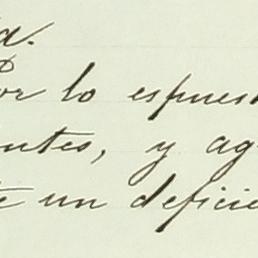 a.
Por lo espuest
entes, y ag
te un deficie